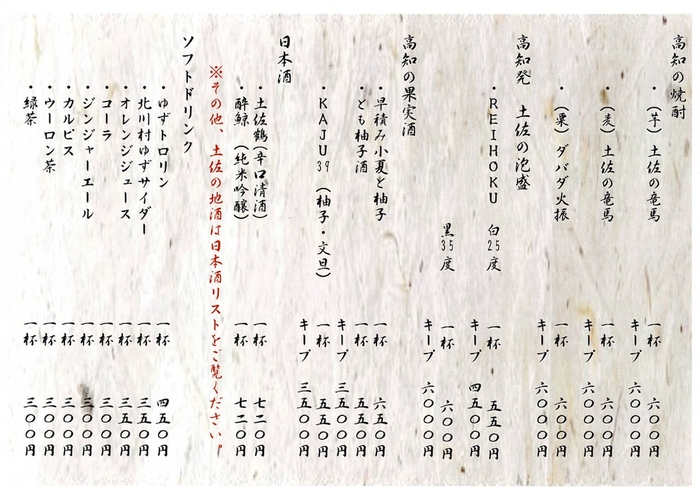 高知の焼酎
・(芋)土佐の竜馬 一杯 六〇〇円
キープ 六〇〇〇円
・(麦)土佐の竜馬 一杯 六〇〇円
キープ 六〇〇〇円
・(栗)ダバダ火振 一杯 六〇〇円
キープ 六〇〇〇円
高知発 土佐の泡盛
・REIHOKU 白25度 一杯 五五〇円
キープ 四五〇〇円
黒35度 一杯 六〇〇円
キープ 六〇〇〇円
高知の果実酒
・早積み小夏と柚子 一杯 六五〇円
・とも柚子酒 一杯 五五〇円
キープ 三五〇〇円
・KAJU39(柚子・文旦) 一杯 五五〇円
キープ 三五〇〇円
日本酒
・土佐鶴(辛口清酒) 一杯 七二〇円
・酔鯨(純米吟醸) 一杯 七二〇円
※その他、土佐の地酒は日本酒リストをご覧ください。
ソフトドリンク
・ゆずトロリン 一杯 四五〇円
・北川村ゆずサイダー 一杯 三五〇円
・オレンジジュース 一杯 三五〇円
・コーラ 一杯 三〇〇円
・ジンジャーエール 一杯 三〇〇円
・カルピス 一杯 三〇〇円
・ウーロン茶 一杯 三〇〇円
・緑茶 一杯 三〇〇円